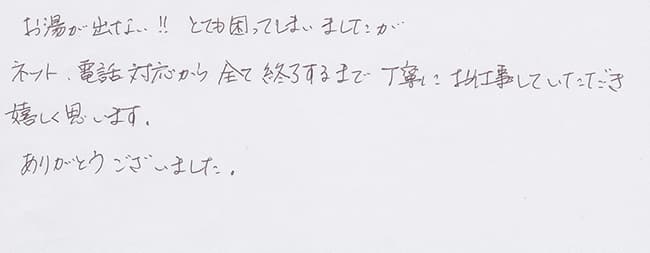 お湯が出ない!! とても困ってしまいましたが
ネット、電話対応から全て終了するまで丁寧にお仕事していただき
嬉しく思います。
ありがとうございました。